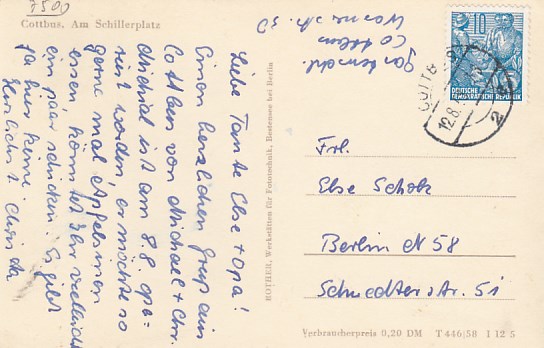 7500
Cottbus. Am Schillerplatz
Liebe Tante Else + Opa!
Einen herzlichen Gruß aus
Cottbus von Michael + Chr.
Michael ist am 8.8. ope-
riert worden er möchte so
gerne mal Apfelsinen
essen könntet Ihr vielleicht
ein paar schicken. Es gibt
ja hier keine.
Herzlichst Christa
Gartenrehl.
Cottbus
ROTHER, Werkstätten für Fototechnik, Beetensee bei Berlin
10
DEUTSCHE
DEMOKRATISCHE REPUBLIK
COTTB
12.8.
2
Frl.
Else Scholz
Berlin N 58
Schwedter str. 51
Verbraucherpreis 0,20 DM T 446/58 I 12 5